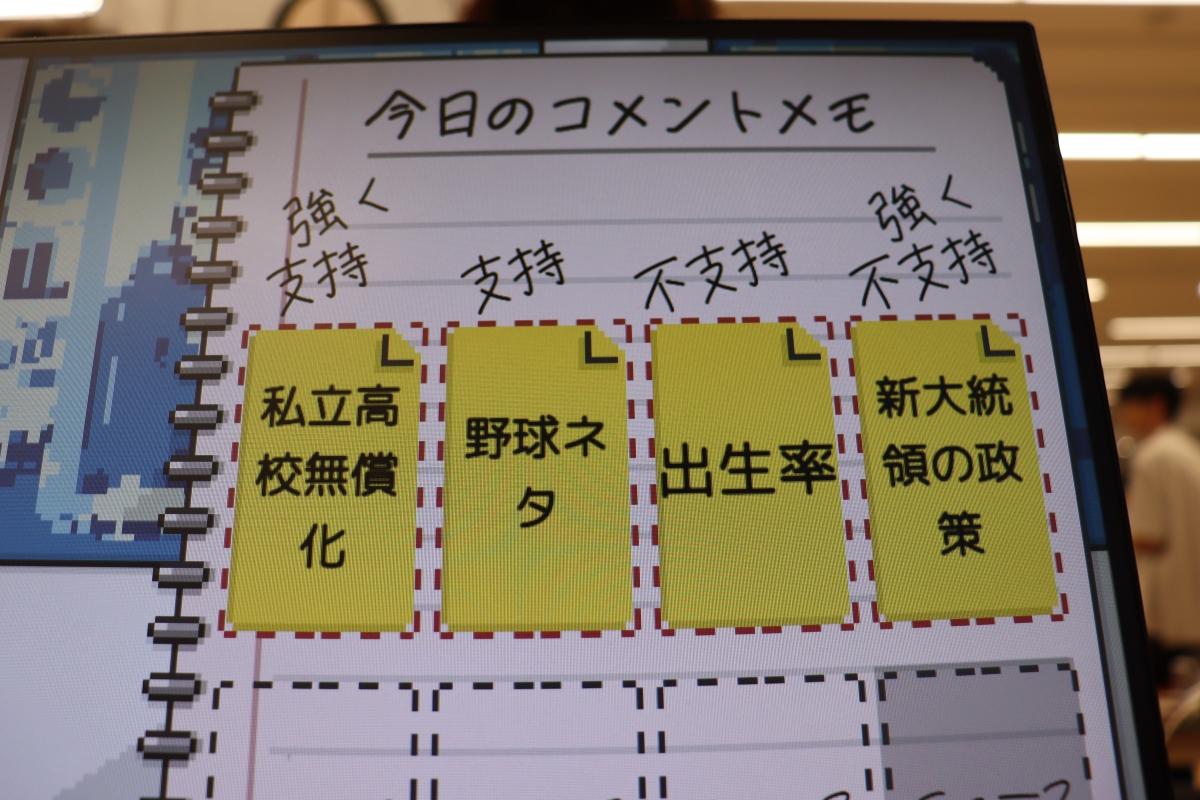 今日のコメントメモ
強く
支持
支持
不支持
強く
不支持
私立高
校無償
化
野球ネ
タ
出生率
新大統
領の政
策